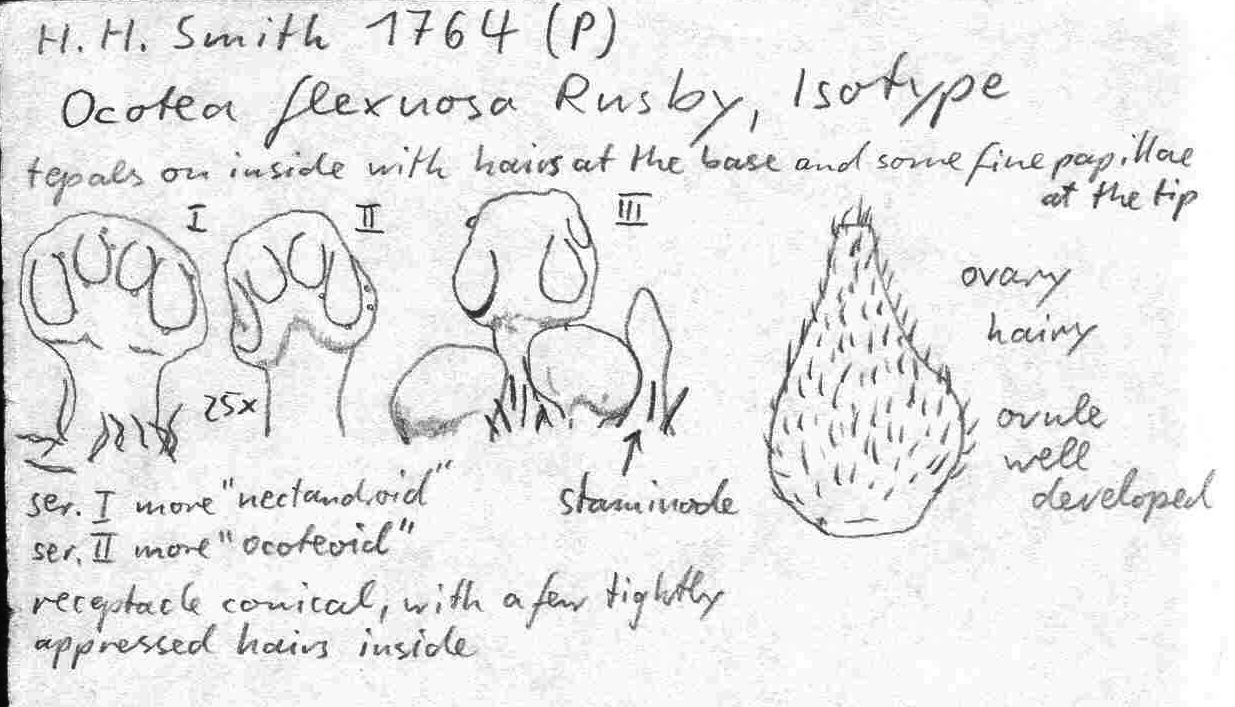 H. H. Smith 1764 (P)
Ocotea flexuosa Rusby, Isotype
tepals on inside with hairs at the base and some fine papillae
at the tip
I
II
III
25x
ovary
hairy
ovule
well
developed
staminode
ser. I more "nectandroid"
ser. II more "ocoteoid"
receptacle conical, with a few tightly
appressed hairs inside